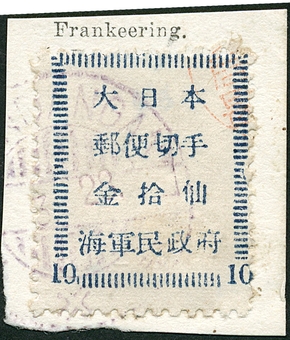 Frankeering.
大日本
郵便切手
金拾仙
海軍民政府
10 10